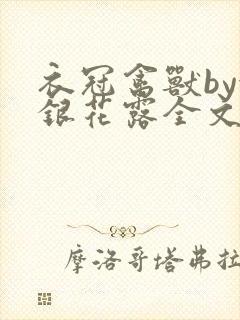 衣冠禽獸by
銀花露全文
摩洛哥塔弗拉